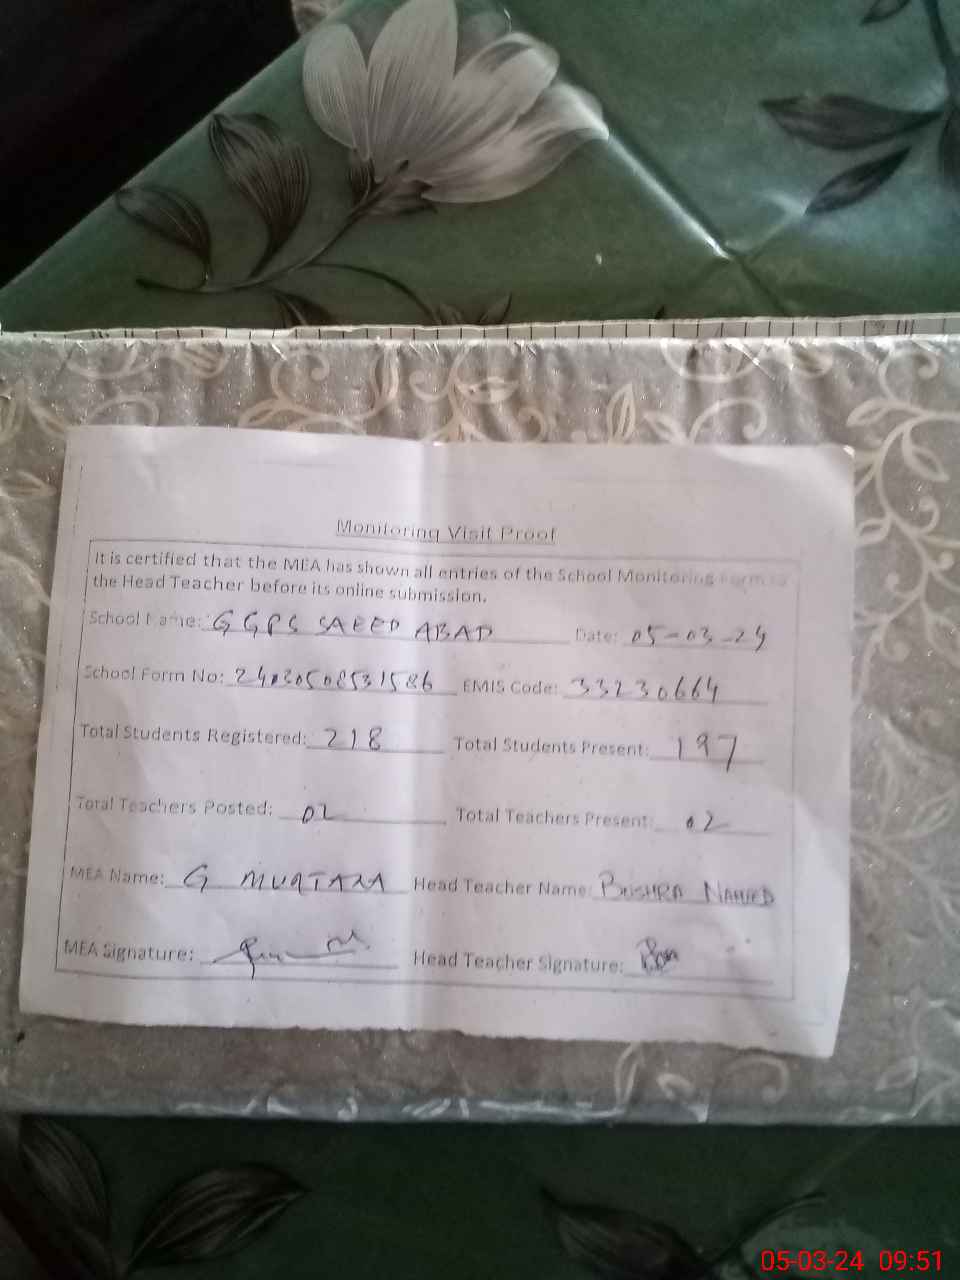 Monitoring Visit Proof
It is certified that the MEA has shown all entries of the School Monitoring Form to
the Head Teacher before its online submission.
School Name: GGPS SAEED ABAD Date: 05-03-24
School Form No: 24030508531586 EMIS Code: 33230664
Total Students Registered: 218 Total Students Present: 197
Total Teachers Posted: 02 Total Teachers Present: 02
MEA Name: G MURTAZA Head Teacher Name: BUSHRA
MEA Signature: Head Teacher Signature:
05-03-24 09:51